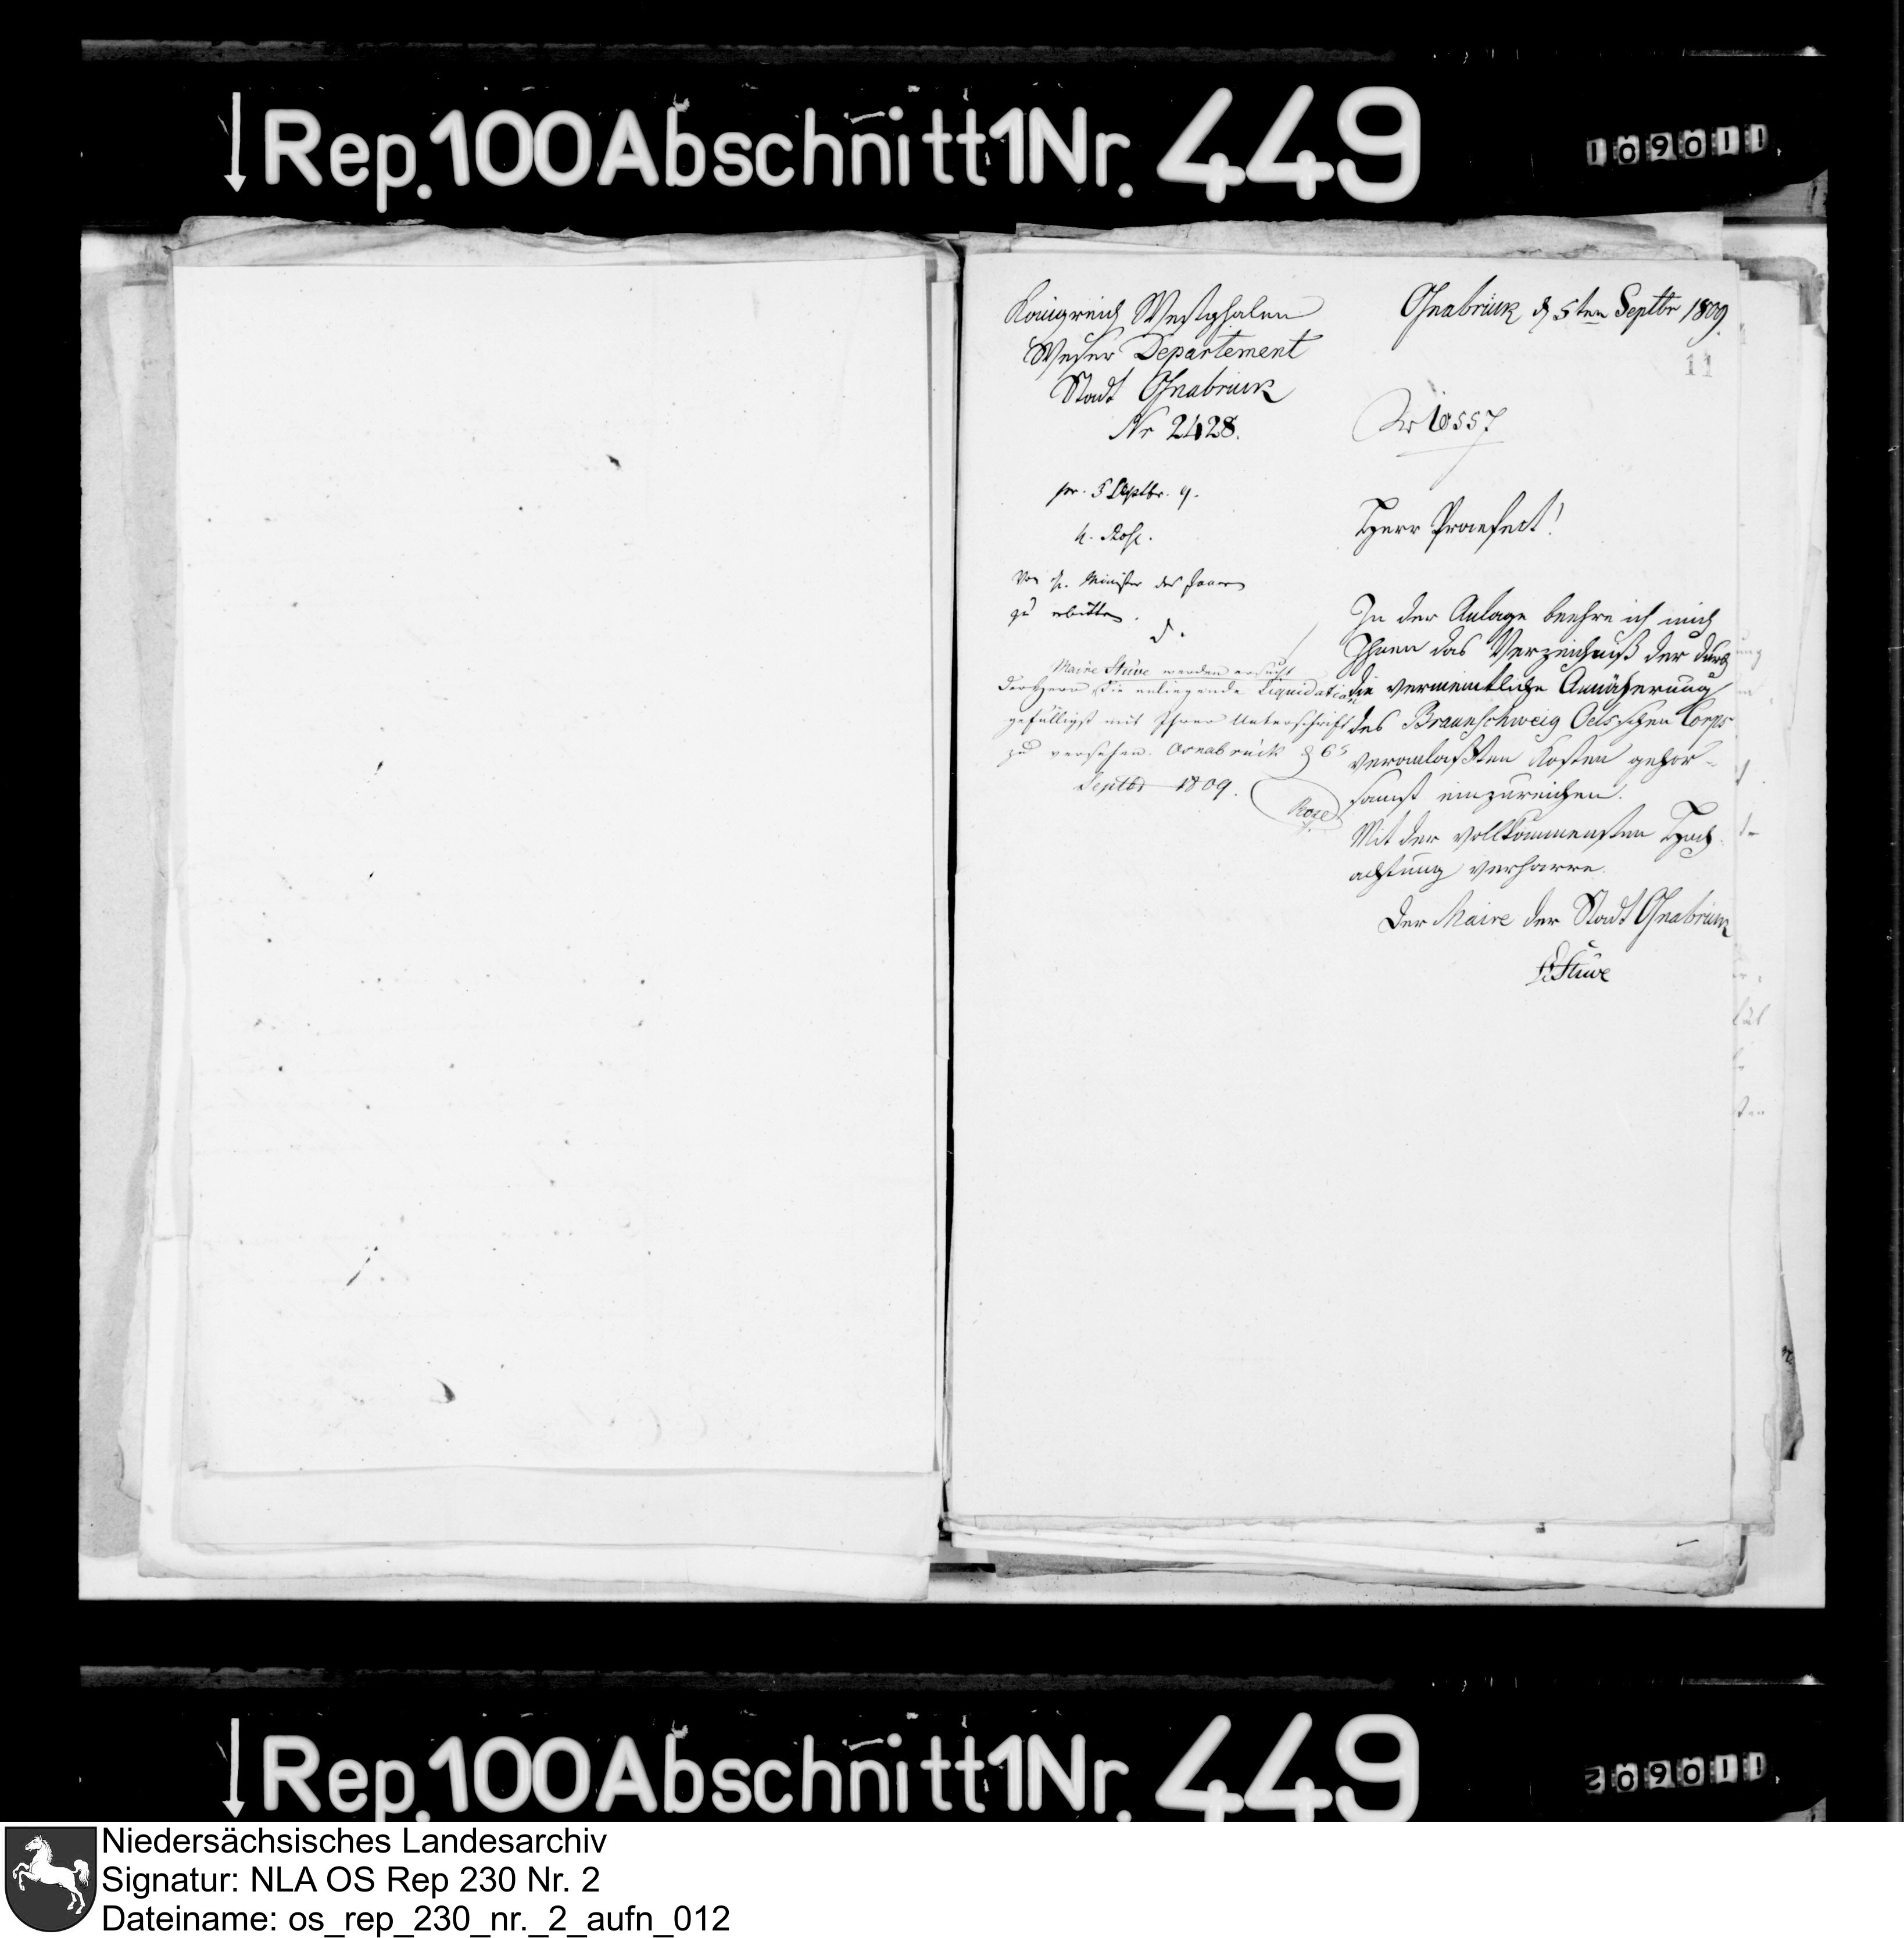 Rep.100Abschnitt1Nr.449
109011
Königreich Westphalen
Weser Departement
Stadt Osnabrück
Nr 2428.
Osnabrück d 5ten Septbr 1809.
11
Nr 10557
pr. 5 Septbr. 9.
h. Rose.
Von H. Minister des Innern
zu erbitten.
Maire Stüve werden ersucht
Der Herr die anliegende Liquidation
gefälligst mit Ihrer Unterschrift
zu versehen. Osnabrück d 6n
Septbr 1809.
Rose
Herr Praefect!
In der Anlage beehre ich mich
Ihnen das Verzeichniß der durch
die vermeintliche Annäherung
des Braunschweig Oelsschen Corps
veranlaßten Kosten gehor-
samst einzureichen.
Mit der vollkommensten Hoch
achtung verharre.
Der Maire der Stadt Osnabrück
Stüve
Rep.100Abschnitt1Nr.449
209011
Niedersächsisches Landesarchiv
Signatur: NLA OS Rep 230 Nr. 2
Dateiname: os_rep_230_nr._2_aufn_012